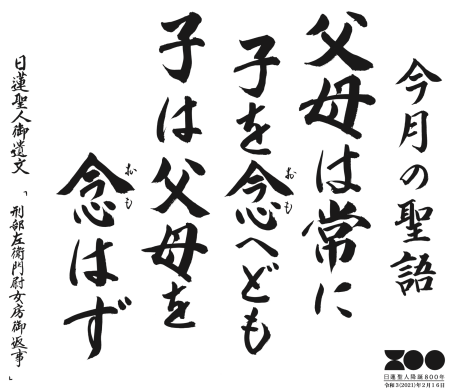 今月の聖語
父母は常に
子を念へども
おも
子は父母を
念はず
おも
日蓮聖人御遺文
「刑部左衛門尉女房御返事」
日蓮聖人降誕800年
令和3(2021)年2月16日